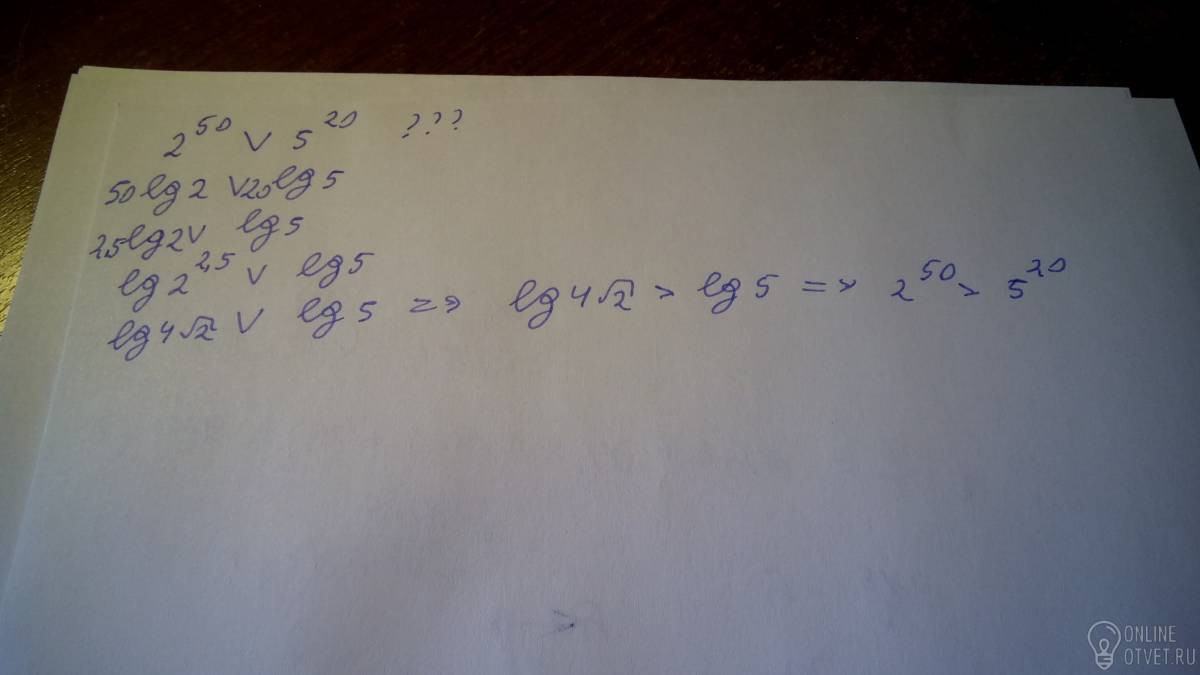 2^50 ∨ 5^20 ???
50 lg 2 ∨ 20 lg 5
2,5 lg 2 ∨ lg 5
lg 2^2,5 ∨ lg 5
lg 4√2 ∨ lg 5 => lg 4√2 > lg 5 => 2^50 > 5^20
ONLINE
OTVET.RU